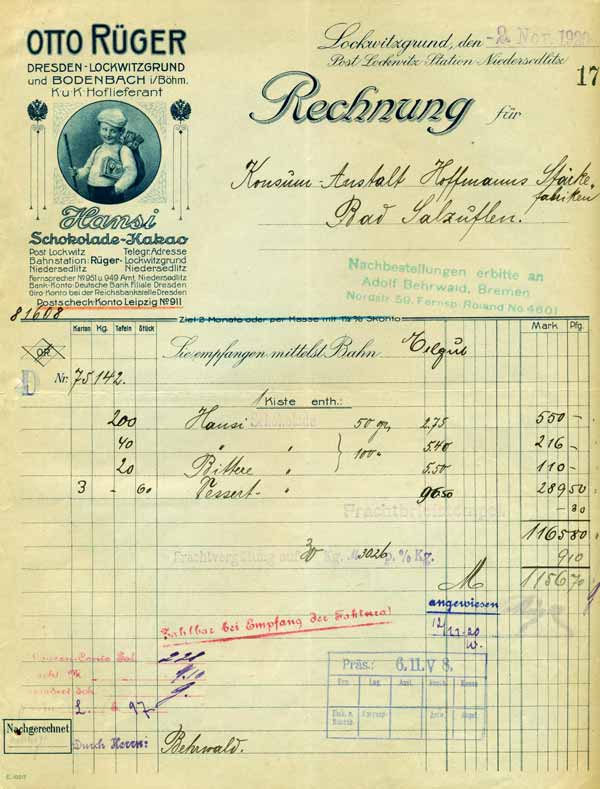 OTTO RÜGER
DRESDEN-LOCKWITZGRUND
und BODENBACH i/Böhm.
K.u.K. Hoflieferant
Hansi
Schokolade-Kakao
Post Lockwitz Telegr. Adresse
Bahnstation: Rüger-Lockwitzgrund
Niedersedlitz Niedersedlitz
Fernsprecher Nº 951 u. 949 Amt Niedersedlitz
Bank-Konto: Deutsche Bank Filiale Dresden
Giro Konto bei der Reichsbankstelle Dresden
Postscheck-Konto Leipzig Nº 911
Lockwitzgrund, den -2. Nov. 1920
Post Lockwitz Station Niedersedlitz
17
Rechnung für
Konsum-Anstalt Hoffmanns Stärke-
fabriken
Bad Salzuflen.
Nachbestellungen erbitte an
Adolf Behrwald, Bremen
Nordstr. 59, Fernsp. Roland No 4601
81608
Ziel 2 Monate oder per Kasse mit 1½% Skonto
Karton Kg. Tafeln Stück Mark Pfg.
Sie empfangen mittelst Bahn Eilgut
OR
D Nr. 75142.
1 Kiste enth.:
200 Hansi Schokolade 50 gr. 2.75 550 -
40 " " 100 " 5.40 216 -
20 Bittere " 5.50 110 -
3 - 60 Dessert- " 96.50 289 50
Frachtbriefstempel - 30
1165 80
Frachtvergütung auf 30 Kg. M 30.26 p. % Kg. 9 10
M 1156 70
angewiesen
12/11.20
Zahlbar bei Empfang der Faktura!
Präs.: 6.11.V 8.
220
9.10
9.
L. 97
Nachgerechnet
Durch Herrn: Behrwald.